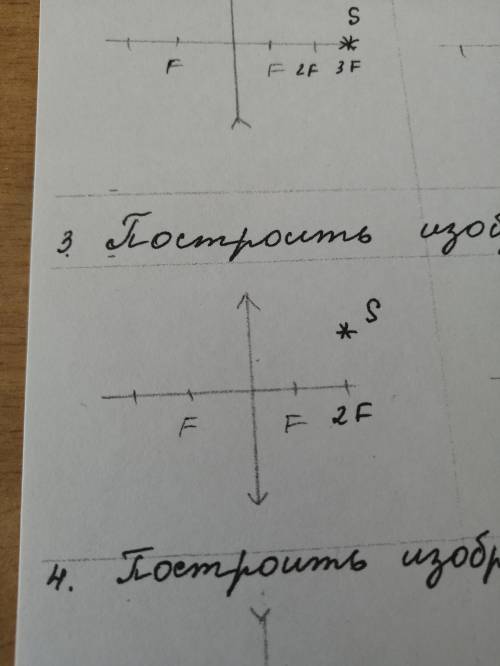 S
F F 2F 3F
3. Построить
S
F F 2F
4. Построить